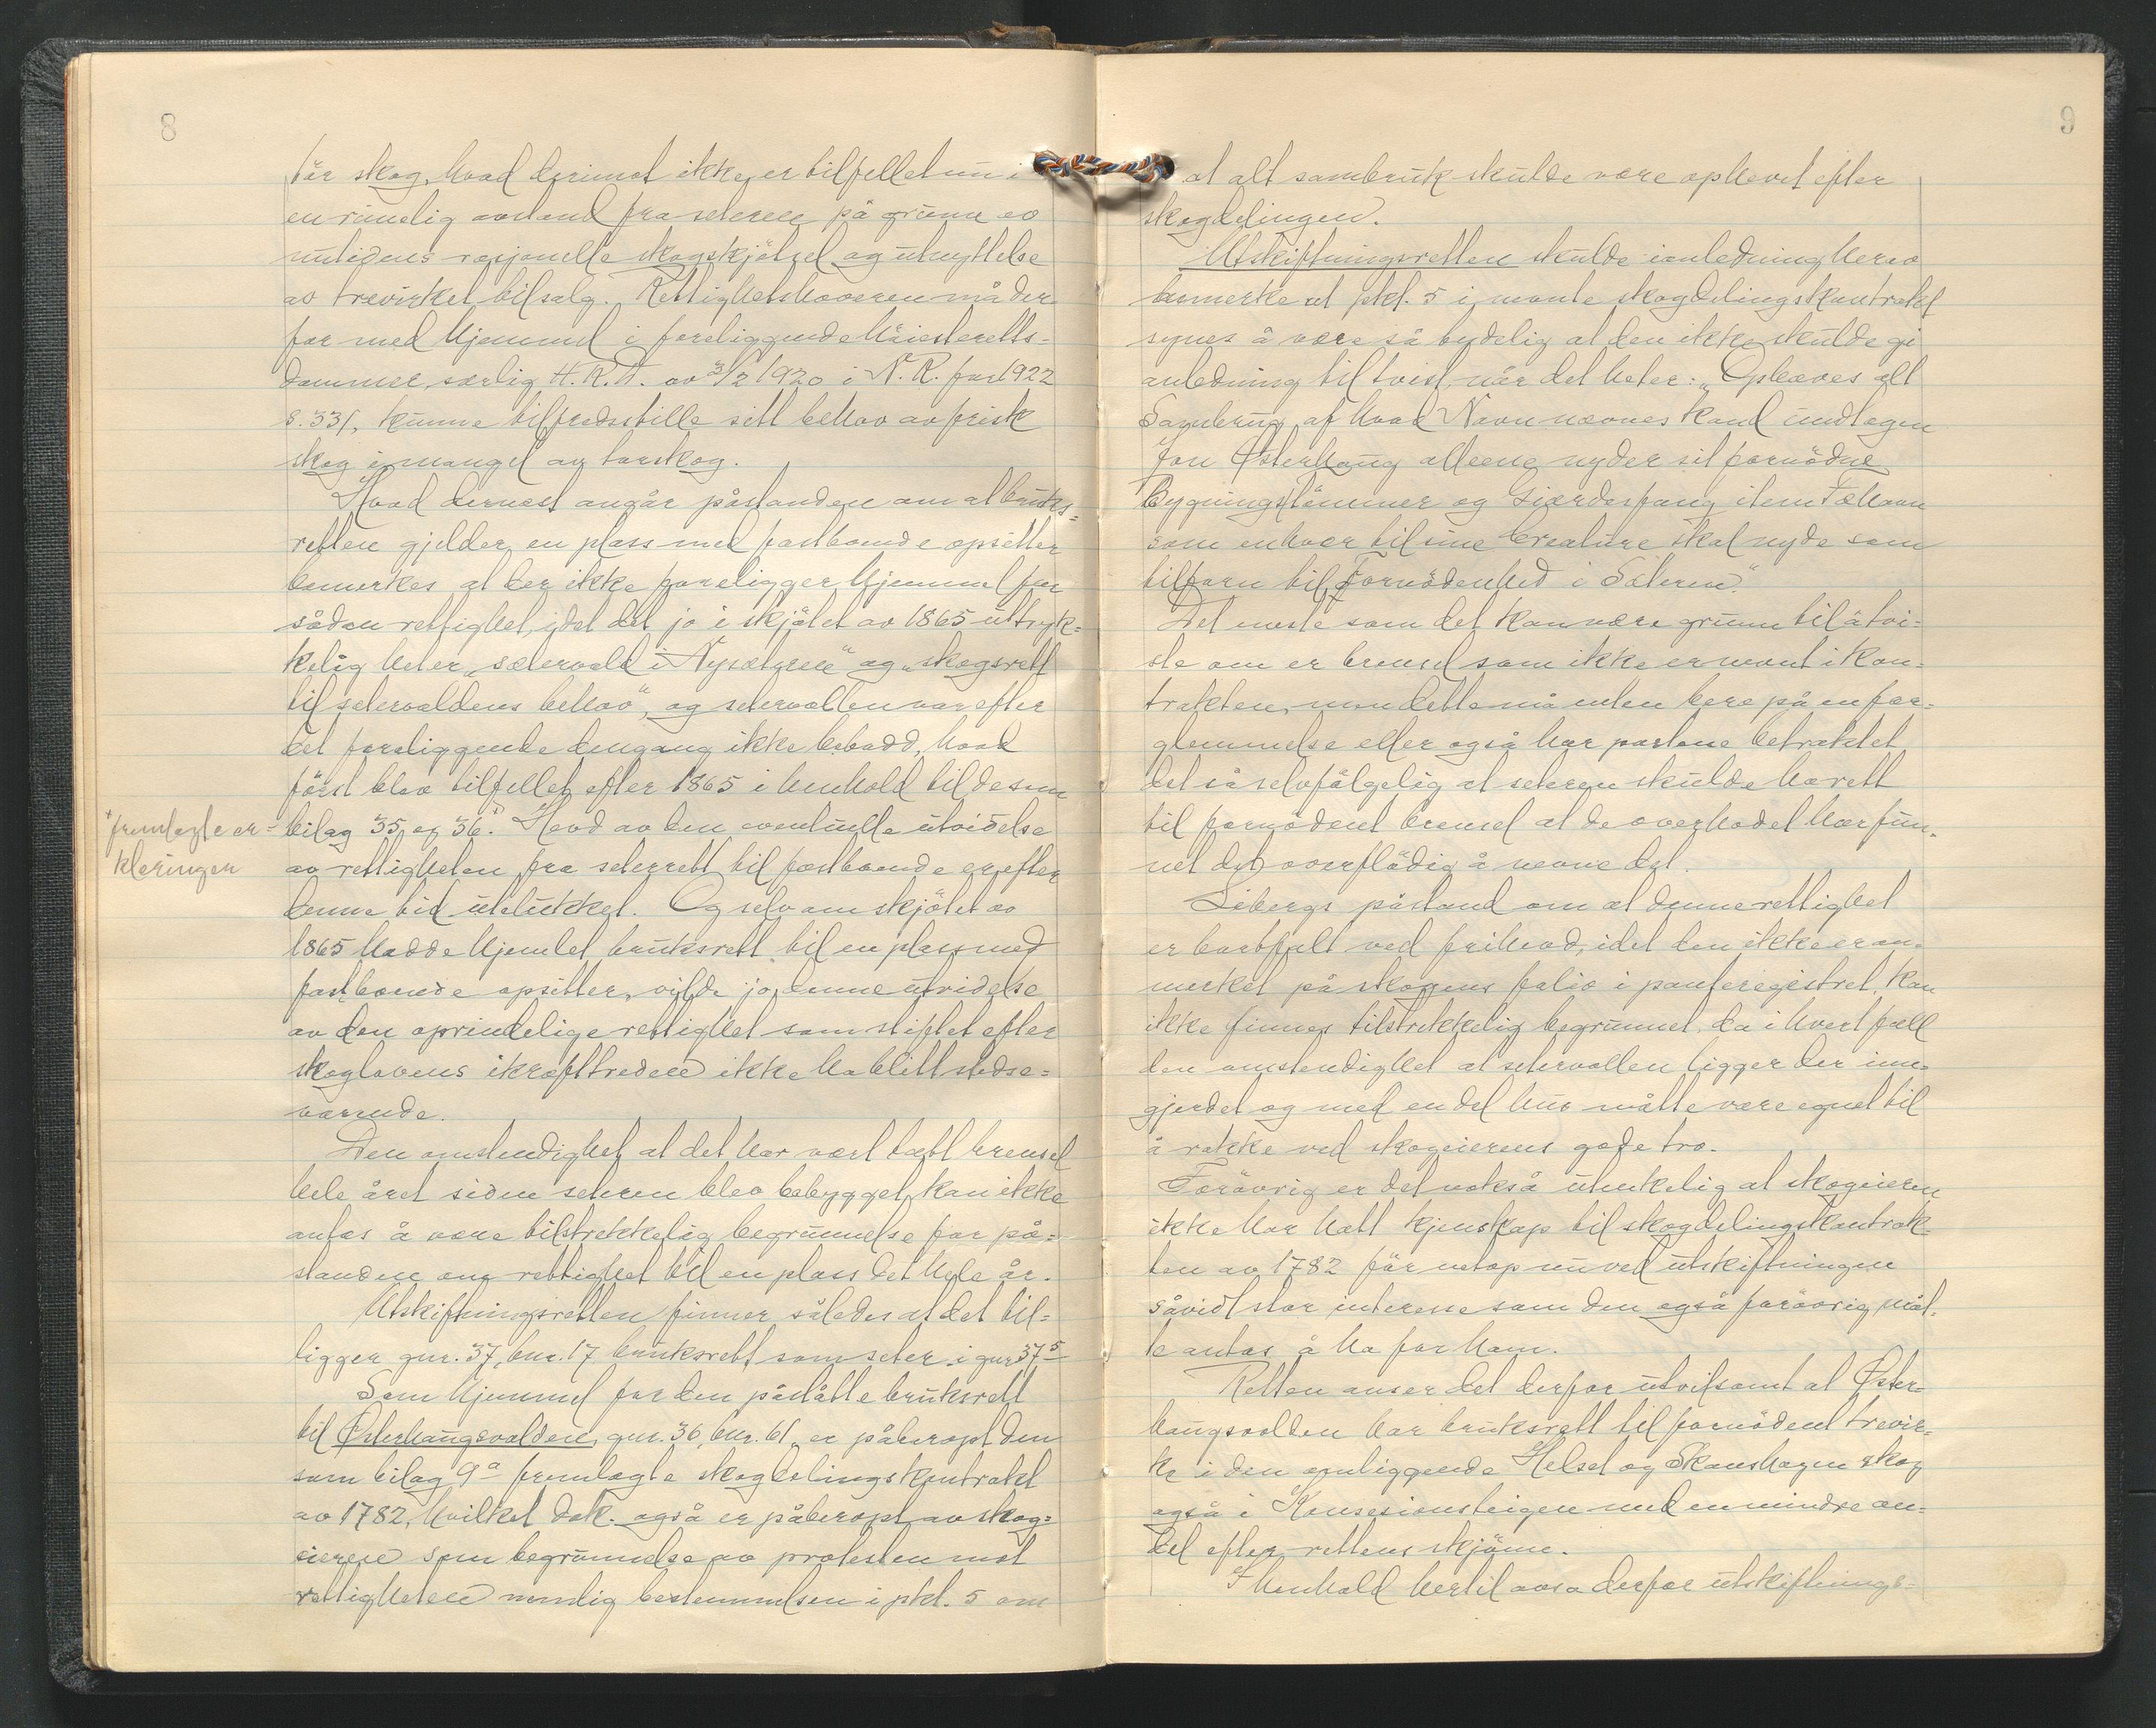 8
tör skog, hvad derimot ikke er tilfellet nu i
en rimelig avstand fra seteren på grunn av
nutidens rasjonelle skogskjötsel og utnyttelse
av trevirket til salg. Rettighetshaveren må der-
for med hjemmel i foreliggende höiesteretts-
dommer, særlig H.R.D. av 3/2 1920 i N.R. for 1922
s. 331, kunne tilfredsstille sitt behov av frisk
skog i mangel av törskog.
Hvad dernest angår påstanden om at bruks-
retten gjelder en plass med fastboende opsitter
bemerkes at der ikke foreligger hjemmel for
sådan rettighet, idet det jo i skjötet av 1865 uttryk-
kelig heter „sætervold i Nysætgren" og „skogsrett
til setervoldens behov", og setervollen var efter
det foreliggende dengang ikke bebodd, hvad
först blev tilfellet efter 1865 i henhold til de som
bilag 35 og 36.+ Hevd av den eventuelle utvidelse
+ fremlagte er-
kleringer
av rettigheten fra seterrett til fastboende er efter
denne tid utelukket. Og selv om skjötet av
1865 hadde hjemlet bruksrett til en plass med
fastboende opsitter, vilde jo denne utvidelse
av den oprindelige rettighet som stiftet efter
skoglovens ikrafttreden ikke ha blitt stedse-
varende.
Den omstendighet at det har vært tatt brensel
hele året siden seteren blev bebygget, kan ikke
antas å være tilstrekkelig begrunnelse for på-
standen om rettighet til en plass det hele år.
Utskiftningsretten finner således at det til-
ligger gnr. 37, bnr. 17 bruksrett som seter i gnr 37 5
Som hjemmel for den påståtte bruksrett
til Østerhaugsvolden, gnr. 36, bnr. 61, er påberopt den
som bilag 9a fremlagte skogdelingskontrakt
av 1782, hvilket dok. også er påberopt av skog-
eieren som begrunnelse av protesten mot
rettigheten nemlig bestemmelsen i pkt. 5 om
9
at alt sambruk skulde være ophevet efter
skogdelingen.
Utskiftningsretten skulde i anledning herav
bemerke at pkt. 5 i nevnte skogdelingskontrakt
synes å være så tydelig at den ikke skulde gi
anledning til tvist, når det heter: „Ophæves alt
Sambrug af hvad Navn nævnes kand undtagen
Jon Østerhaug alleene nyder sit fornödne
bygningstömmer og Giærdesfang item Fæhavn
som enhver til sine Creature skal nyde som
tilforn til Fornödenhed i Sæteren."
Det meste som det kan være grunn til å tvi-
ste om er brensel som ikke er nevnt i kon-
trakten, men dette må enten bero på en for-
glemmelse eller også har partene betraktet
det så selvfölgelig at seteren skulde ha rett
til fornödent brensel at de overhodet har fun-
net det overflödig å nevne det.
Sibergs påstand om at denne rettighet
er bortfalt ved frihevd, idet den ikke er an-
merket på skogens folio i panteregistret, kan
ikke finnes tilstrekkelig begrunnet, da i hvert fall
den omstendighet at setervollen ligger der inn-
gjerdet og med en del hus måtte være egnet til
å rokke ved skogeierens gode tro.
Forövrig er det også utenkelig at skogeieren
ikke har hatt kjenskap til skogdelingskontrak-
ten av 1782 för netop nu ved utskiftningen
såvidt stor interesse som den også forövrig måt-
te antas å ha for ham.
Retten anser det derfor utvilsomt at Øster-
haugsvolden har bruksrett til fornödent trevir-
ke i den omliggende Helset og Skanshagen skog
også i Konsesionsteigen med en mindre an-
del efter rettens skjönn.
I henhold hertil avsa derfor utskiftnings-